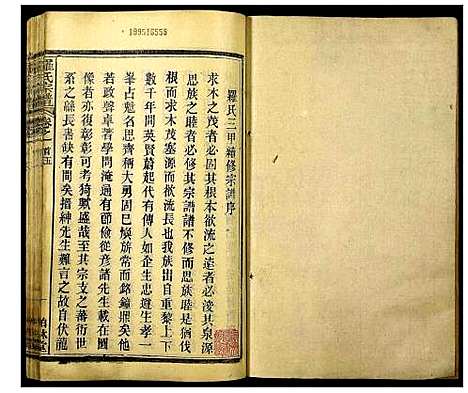 199516555
羅氏三甲續修宗譜序
求木之茂者必固其根本欲流之遠者必浚其泉源
思族之睦者必修其宗譜譜不修而思族睦是猶伐
根而求木茂塞源而欲流長也我族出自重黎上下
數千年間英賢蔚起代有傳人如企生忠遵生孝一
峯占魁名思齊稱大勇固已煥族常而銘鐘鼎矣他
若政聲卓著學問淹通有節儉從彥諸先生載在國
像者亦復彰彰可考猗歟盛哉至其宗支之蕃衍世
系之緜長書缺有間矣搢紳先生難言之故自伏龍
羅氏宗譜
卷之一
首五
柏林堂